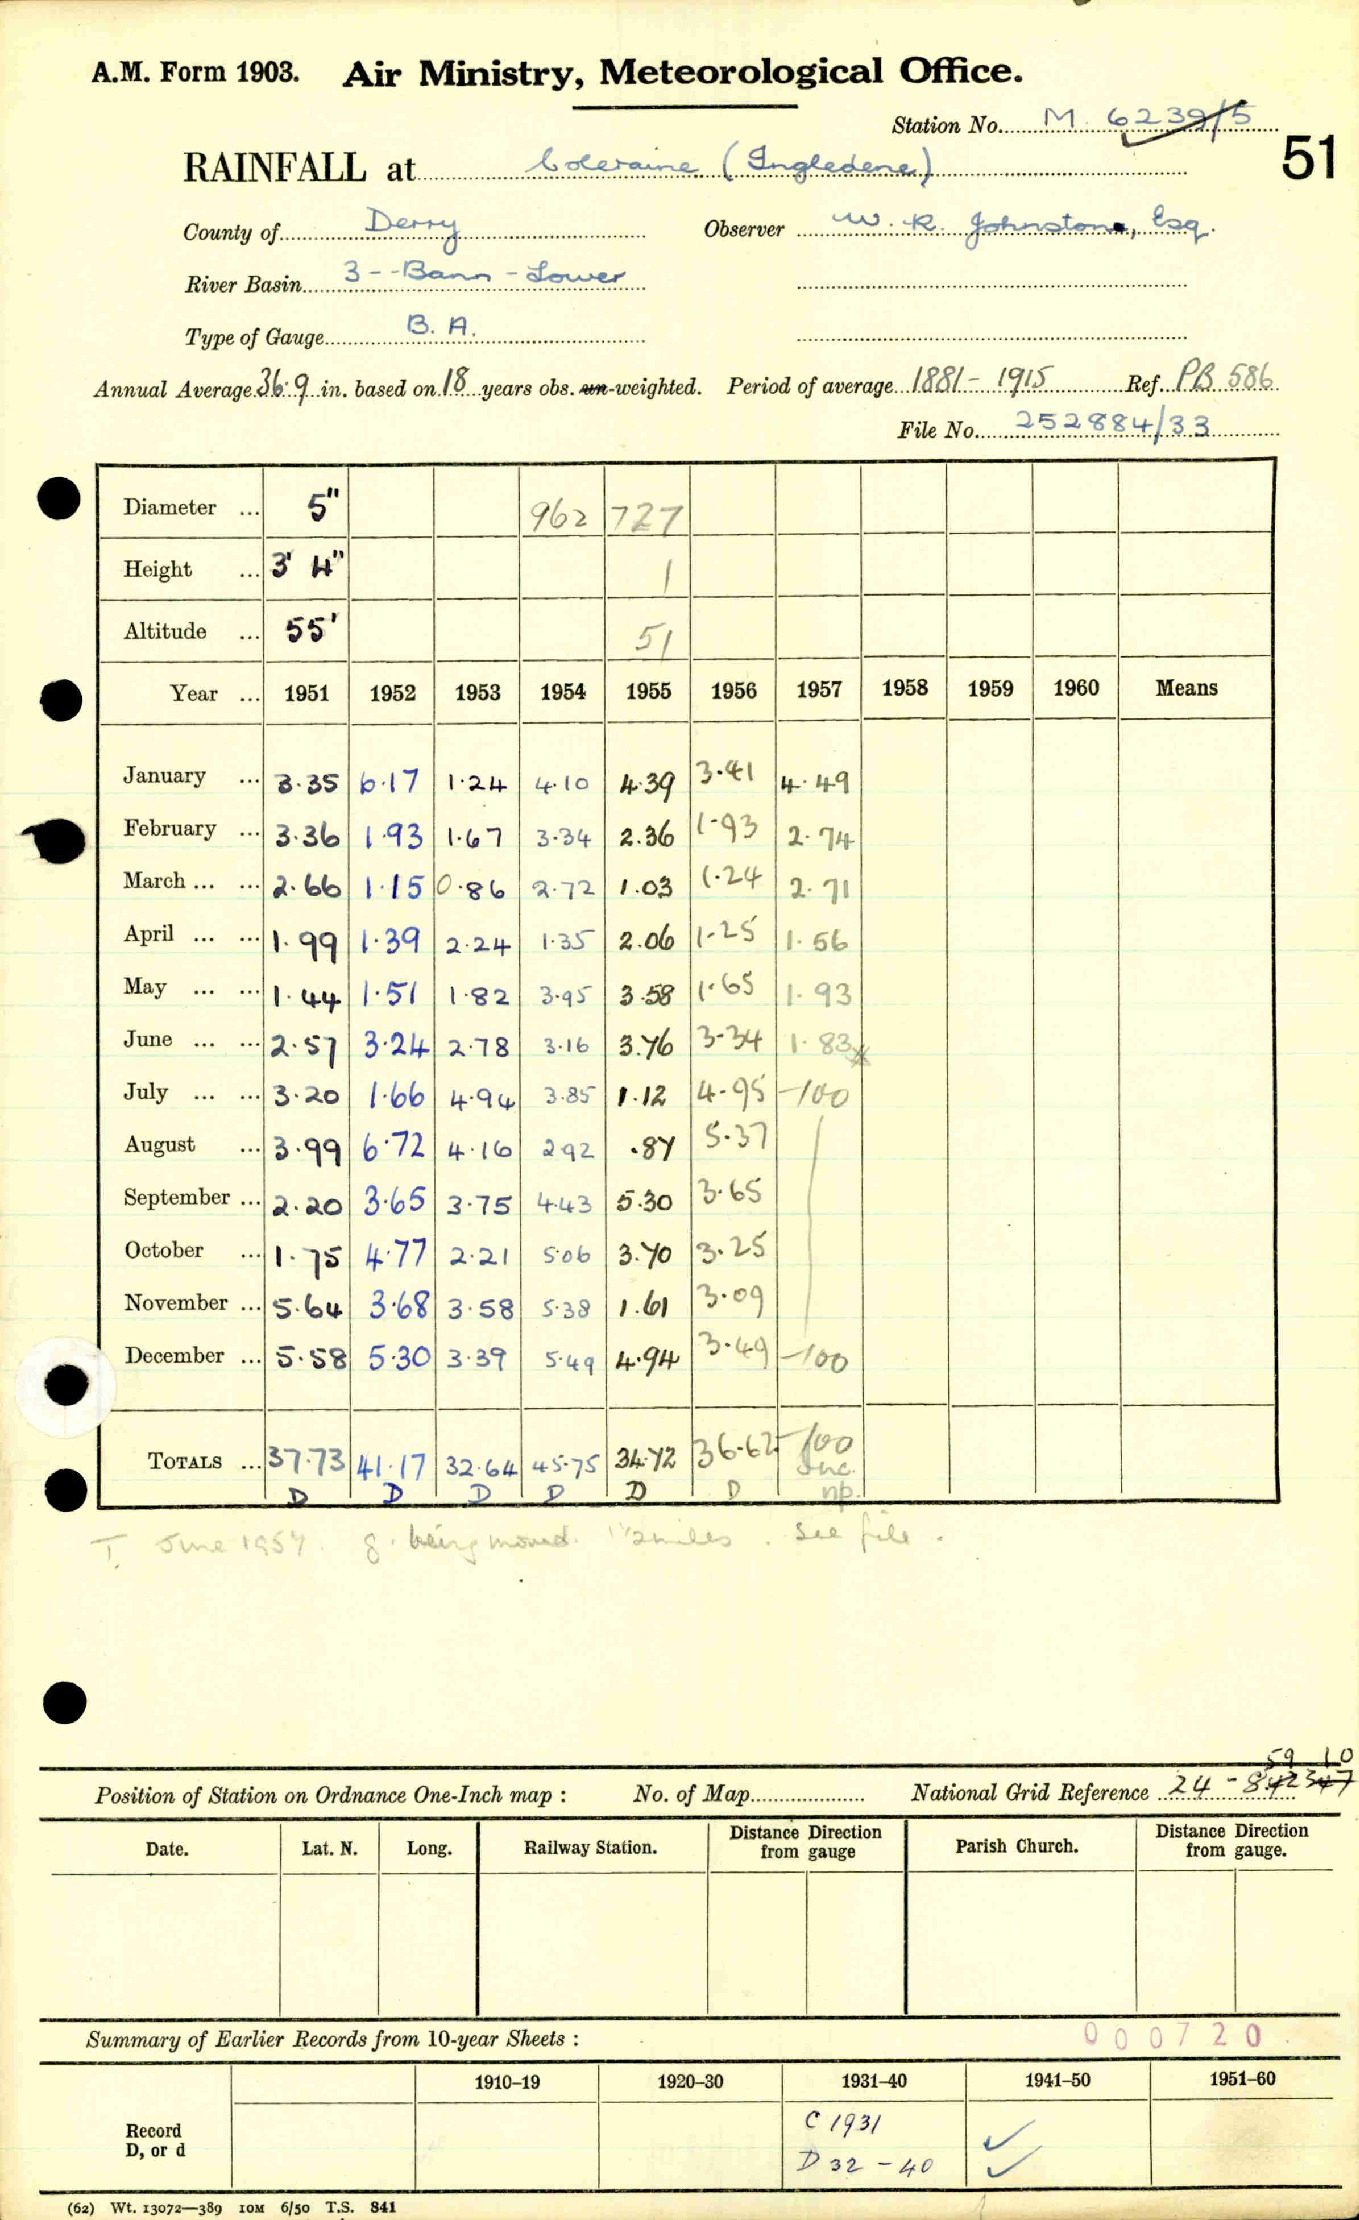 A.M. Form 1903. Air Ministry, Meteorological Office.
Station No. M. 6239/5
51
RAINFALL at Coleraine (Ingledene)
County of Derry Observer W. R. Johnstone, Esq.
River Basin 3--Bann-Lower
Type of Gauge B. A.
Annual Average 36.9 in. based on 18 years obs. un-weighted. Period of average 1881-1915 Ref. PB 586
File No. 252884/33
Diameter ... 5" 962 727
Height ... 3' 4" 1
Altitude ... 55' 51
Year ... 1951 1952 1953 1954 1955 1956 1957 1958 1959 1960 Means
January ... 3.35 6.17 1.24 4.10 4.39 3.41 4.49
February ... 3.36 1.93 1.67 3.34 2.36 1.93 2.74
March ... ... 2.66 1.15 0.86 2.72 1.03 1.24 2.71
April ... ... 1.99 1.39 2.24 1.35 2.06 1.25 1.56
May ... ... 1.44 1.51 1.82 3.95 3.58 1.65 1.93
June ... ... 2.57 3.24 2.78 3.16 3.76 3.34 1.83
July ... ... 3.20 1.66 4.94 3.85 1.12 4.95 -100
August ... 3.99 6.72 4.16 2.92 .87 5.37
September ... 2.20 3.65 3.75 4.43 5.30 3.65
October ... 1.75 4.77 2.21 5.06 3.70 3.25
November ... 5.64 3.68 3.58 5.38 1.61 3.09
December ... 5.58 5.30 3.39 5.49 4.94 3.49 -100
TOTALS ... 37.73 41.17 32.64 45.75 34.72 36.62 -100
Inc.
D D D D D D np.
T. June 1957. g. being moved. 1½ miles. See file.
59 10
Position of Station on Ordnance One-Inch map : No. of Map National Grid Reference 24 - 842347
Date. Lat. N. Long. Railway Station. Distance Direction from gauge Parish Church. Distance Direction from gauge.
Summary of Earlier Records from 10-year Sheets :
000720
1910–19 1920–30 1931–40 1941–50 1951–60
Record
D, or d
C 1931
D 32 - 40
(62) Wt. 13072—389 10M 6/50 T.S. 841